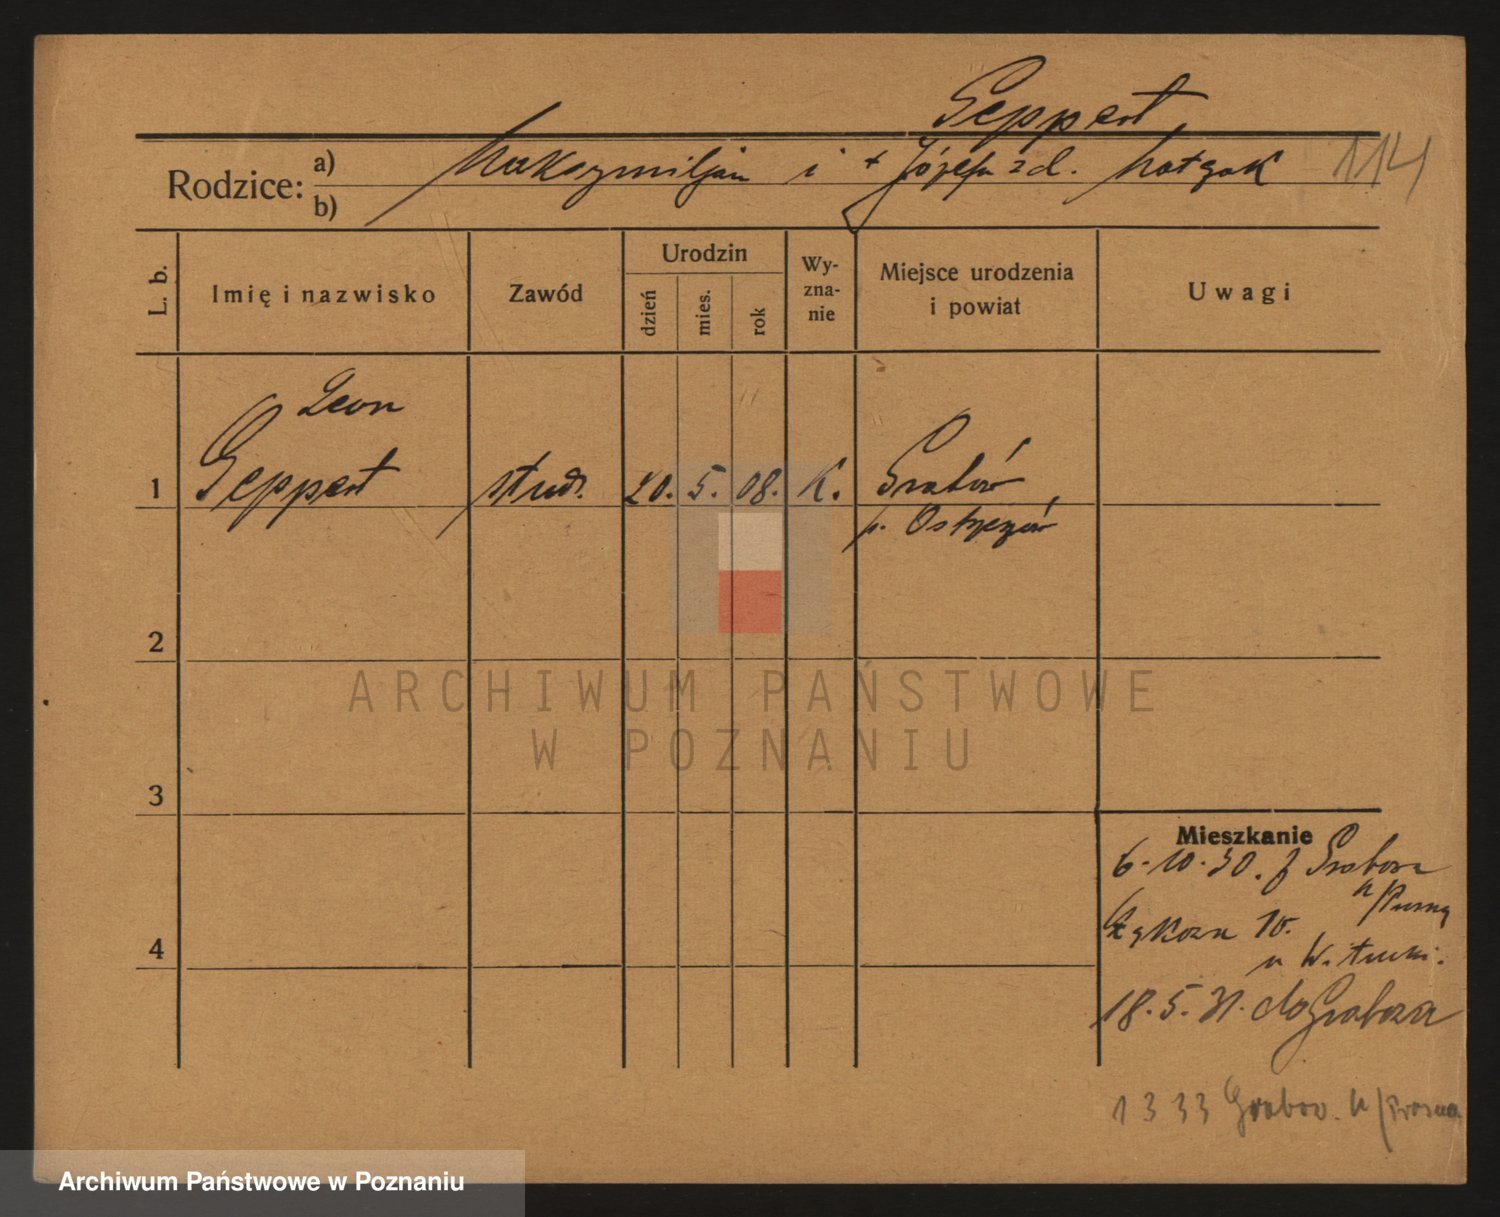 Geppert
Rodzice: a) Maksymiljan i + Józefa z d. Matysak
b)
114
L. b.
Imię i nazwisko
Zawód
Urodzin
dzień
mies.
rok
Wy-
zna-
nie
Miejsce urodzenia
i powiat
Uwagi
Leon
1 Geppert stud. 20. 5. 08. K. Grabów
p. Ostrzeszów
2
3
4
ARCHIWUM PAŃSTWOWE
W POZNANIU
Mieszkanie
6.10.30. z Grabowa
n/Prosną
Łąkowa 10.
u
18.5.31. do Grabowa
1333 Grabow. n/Prosna
Archiwum Państwowe w Poznaniu